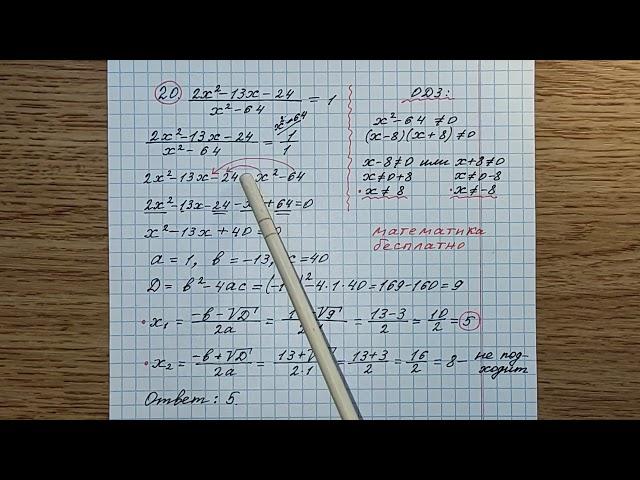 20 (2x²-13x-24)/(x²-64) = 1
(2x²-13x-24)/(x²-64) = 1/1 x²-64
2x²-13x-24 x²-64
2x²-13x-24-x²+64=0
x²-13x+40=0
a=1, b=-13, c=40
D=b²-4ac=(-13)²-4·1·40=169-160=9
x₁=(-b-√D)/2a=(13-√9)/2·1=(13-3)/2=10/2=5
x₂=(-b+√D)/2a=(13+√9)/2·1=(13+3)/2=16/2=8- не под-
ходит
Ответ: 5.
ОДЗ:
x²-64≠0
(x-8)(x+8)≠0
x-8≠0 или x+8≠0
x≠0+8 x≠0-8
x≠8 x≠-8
математика
бесплатно